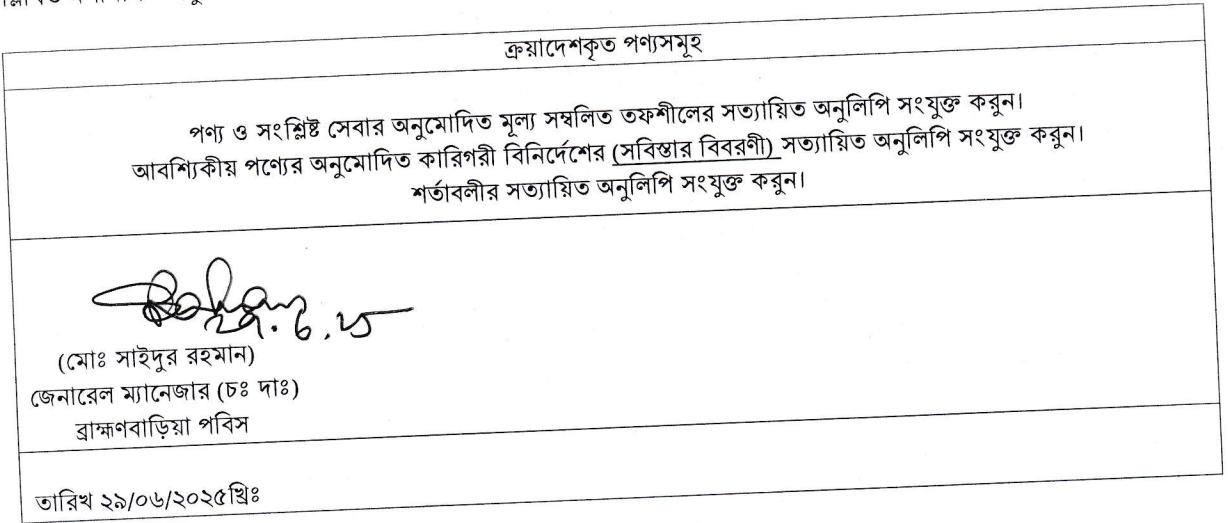 ক্রয়াদেশকৃত পণ্যসমূহ
পণ্য ও সংশ্লিষ্ট সেবার অনুমোদিত মূল্য সম্বলিত তফশীলের সত্যায়িত অনুলিপি সংযুক্ত করুন।
আবশ্যিকীয় পণ্যের অনুমোদিত কারিগরী বিনির্দেশের (সবিস্তার বিবরণী) সত্যায়িত অনুলিপি সংযুক্ত করুন।
শর্তাবলীর সত্যায়িত অনুলিপি সংযুক্ত করুন।
২৯.৬.২৫
(মোঃ সাইদুর রহমান)
জেনারেল ম্যানেজার (চঃ দাঃ)
ব্রাহ্মণবাড়িয়া পবিস
তারিখ ২৯/০৬/২০২৫খ্রিঃ